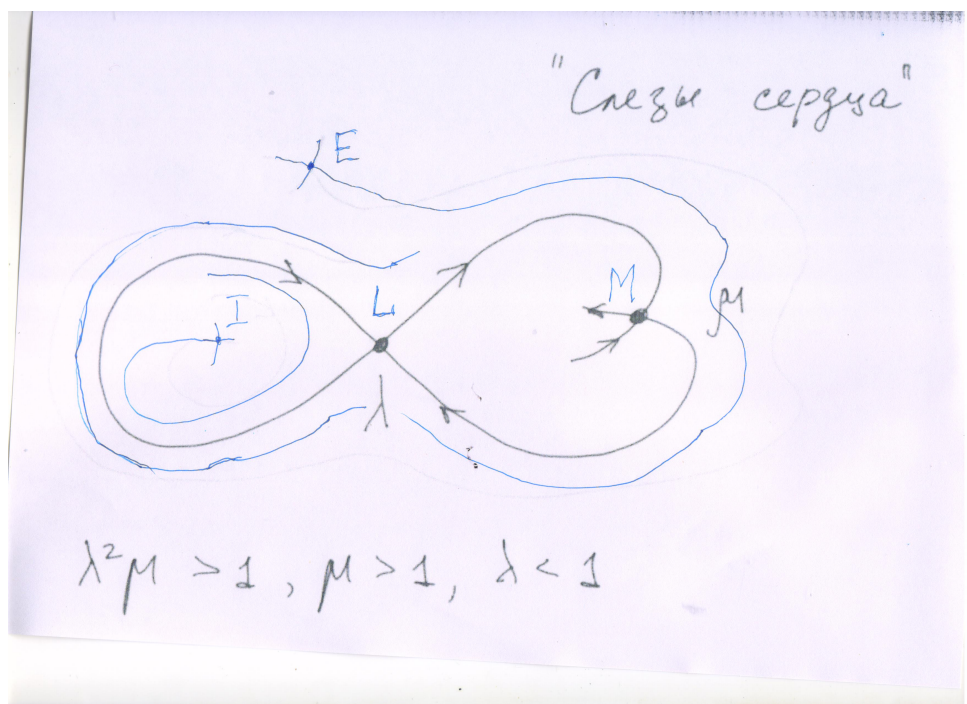 "Слезы сердца"
E
I
L
M
μ
λ
λ²μ > 1, μ > 1, λ < 1